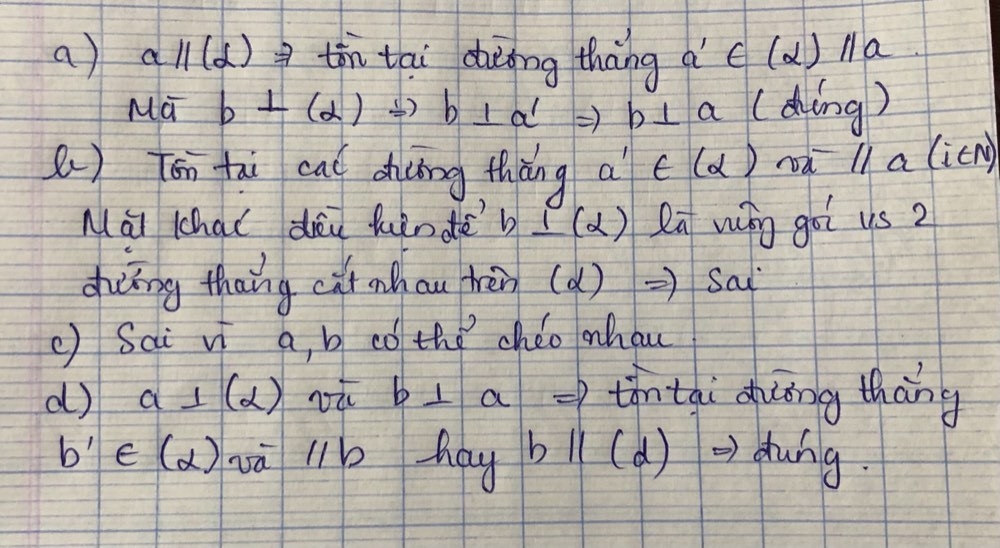 a) a // (α) => tồn tại đường thẳng a' ∈ (α) // a.
Mà b ⊥ (α) => b ⊥ a' => b ⊥ a (đúng)
b) Tồn tại các đường thẳng a' ∈ (α) và // a (i∈N)
Mặt khác điều kiện để b ⊥ (α) là vuông góc vs 2
đường thẳng cắt nhau trên (α) => Sai
c) Sai vì a, b có thể chéo nhau.
d) a ⊥ (α) và b ⊥ a => tồn tại đường thẳng
b' ∈ (α) và // b hay b // (α) => đúng.